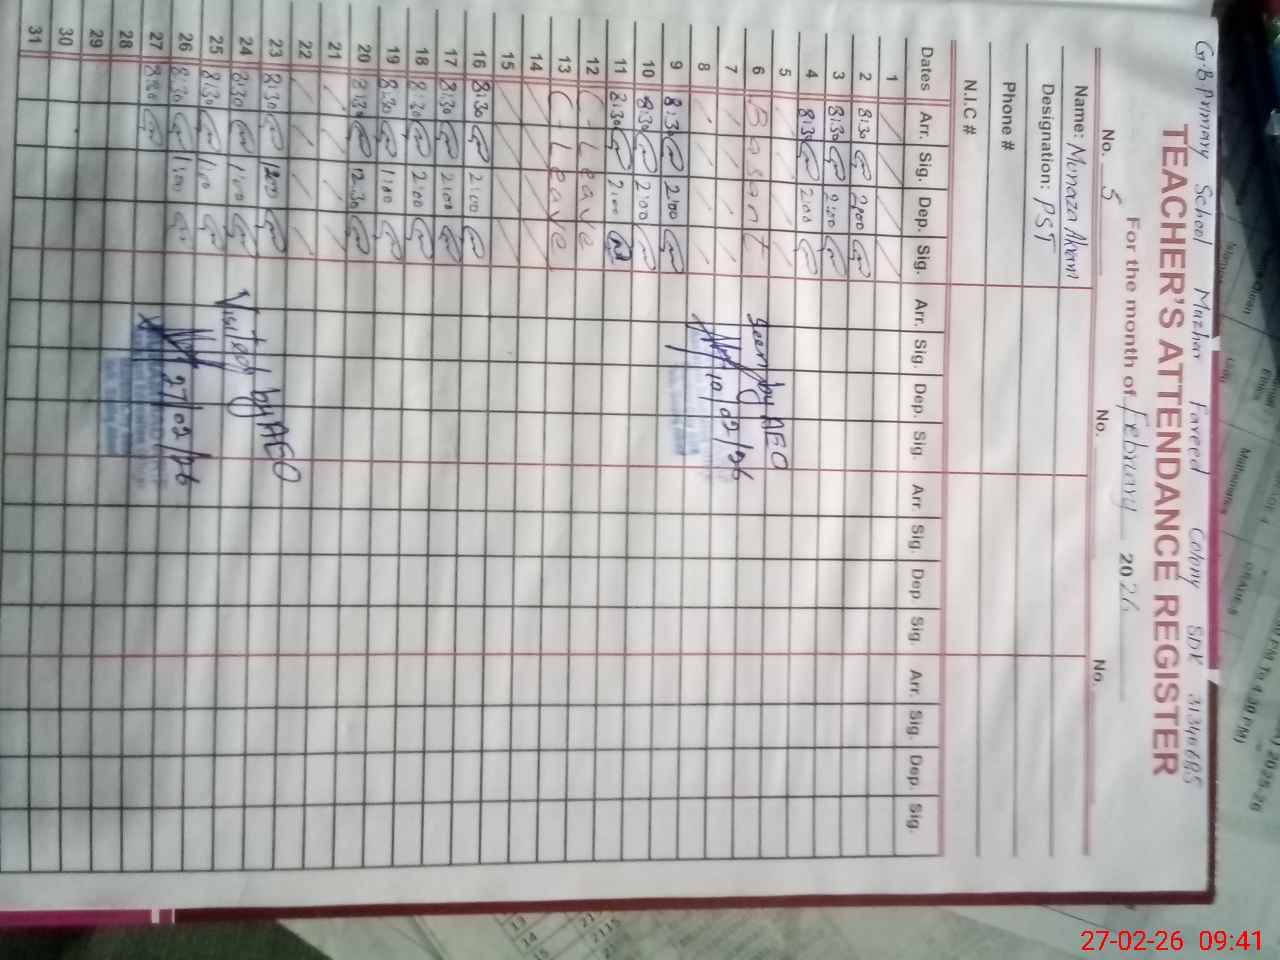 G.B primary School Mazhar Fareed Colony SDK 31340685
TEACHER'S ATTENDANCE REGISTER
For the month of February 2026
No. 5 No. No.
Name: Munaza Akram
Designation: PST
Phone #
N.I.C #
Dates Arr. Sig. Dep. Sig. Arr. Sig. Dep. Sig. Arr. Sig. Dep Sig. Arr. Sig. Dep. Sig.
1
2 8:30 2:00
3 8:30 2:00
4 8:30 2:00
5
6 Basant
7
8
9 8:30 2:00
10 8:30 2:00
11 8:30 2:00
12 C-Leave
13 C-Leave
14
15
16 8:30 2:00
17 8:30 2:00
18 8:30 2:00
19 8:30 1:00
20 8:30 12:30
21
22
23 8:30 1:00
24 8:30 1:00
25 8:30 1:00
26 8:30 1:00
27 8:30
28
29
30
31
Seen by AEO
10/02/26
Visited by AEO
27/02/26
27-02-26 09:41